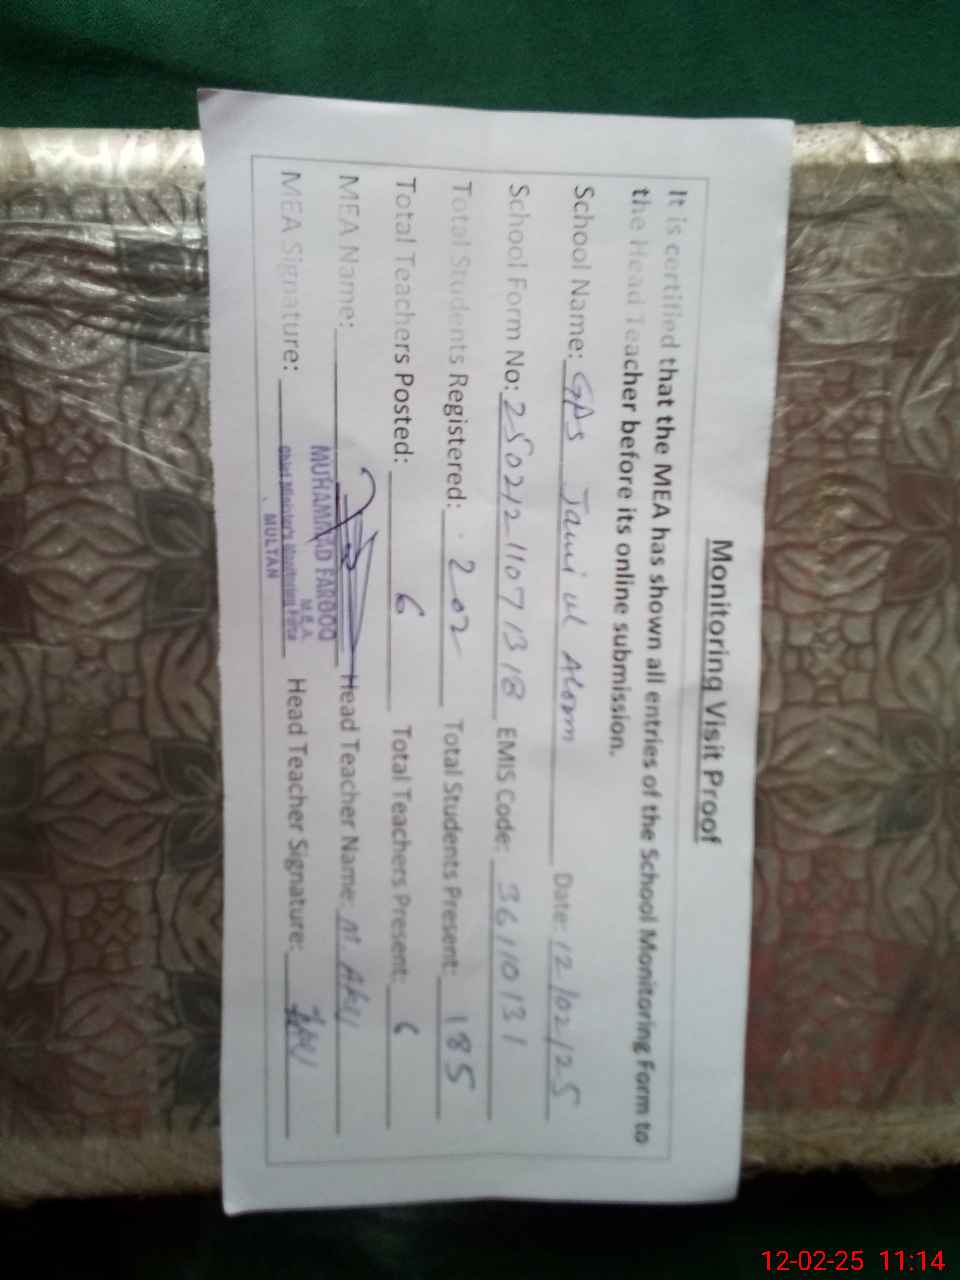 Monitoring Visit Proof
It is certified that the MEA has shown all entries of the School Monitoring Form to
the Head Teacher before its online submission.
School Name: GPS Jamil ul Alam Date: 12/02/25
School Form No: 25021211071318 EMIS Code: 36110131
Total Students Registered: 202 Total Students Present: 185
Total Teachers Posted: 6 Total Teachers Present: 6
MEA Name: Head Teacher Name: M.
MEA Signature: Head Teacher Signature:
MUHAMMAD FAROOQ
M.E.A
Chief Minister's Monitoring Force
MULTAN
12-02-25 11:14